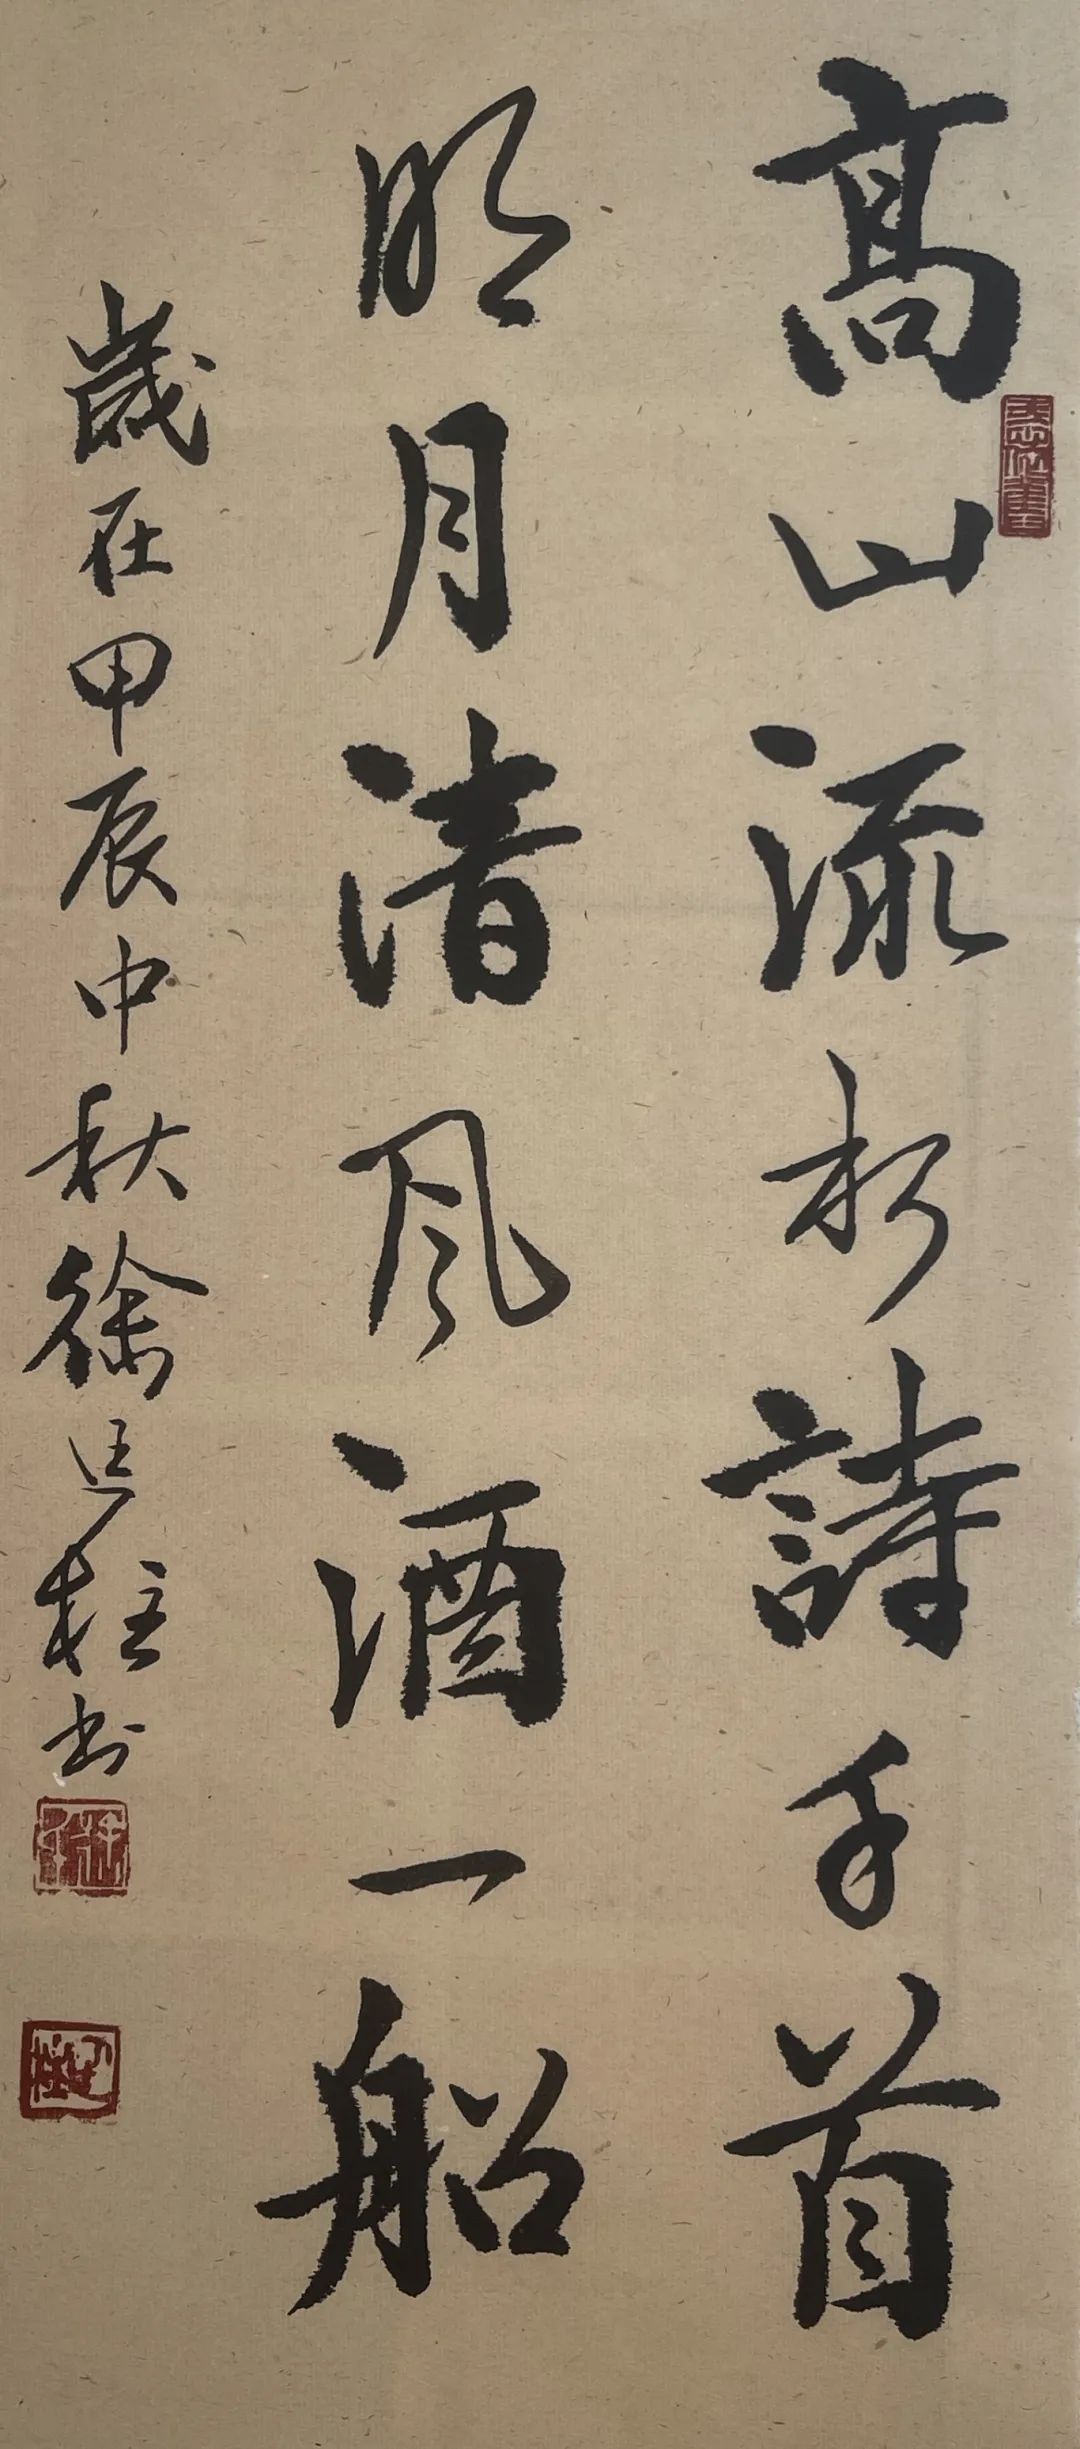 高山流水詩千首
明月清風酒一船
歲在甲辰中秋徐柱书